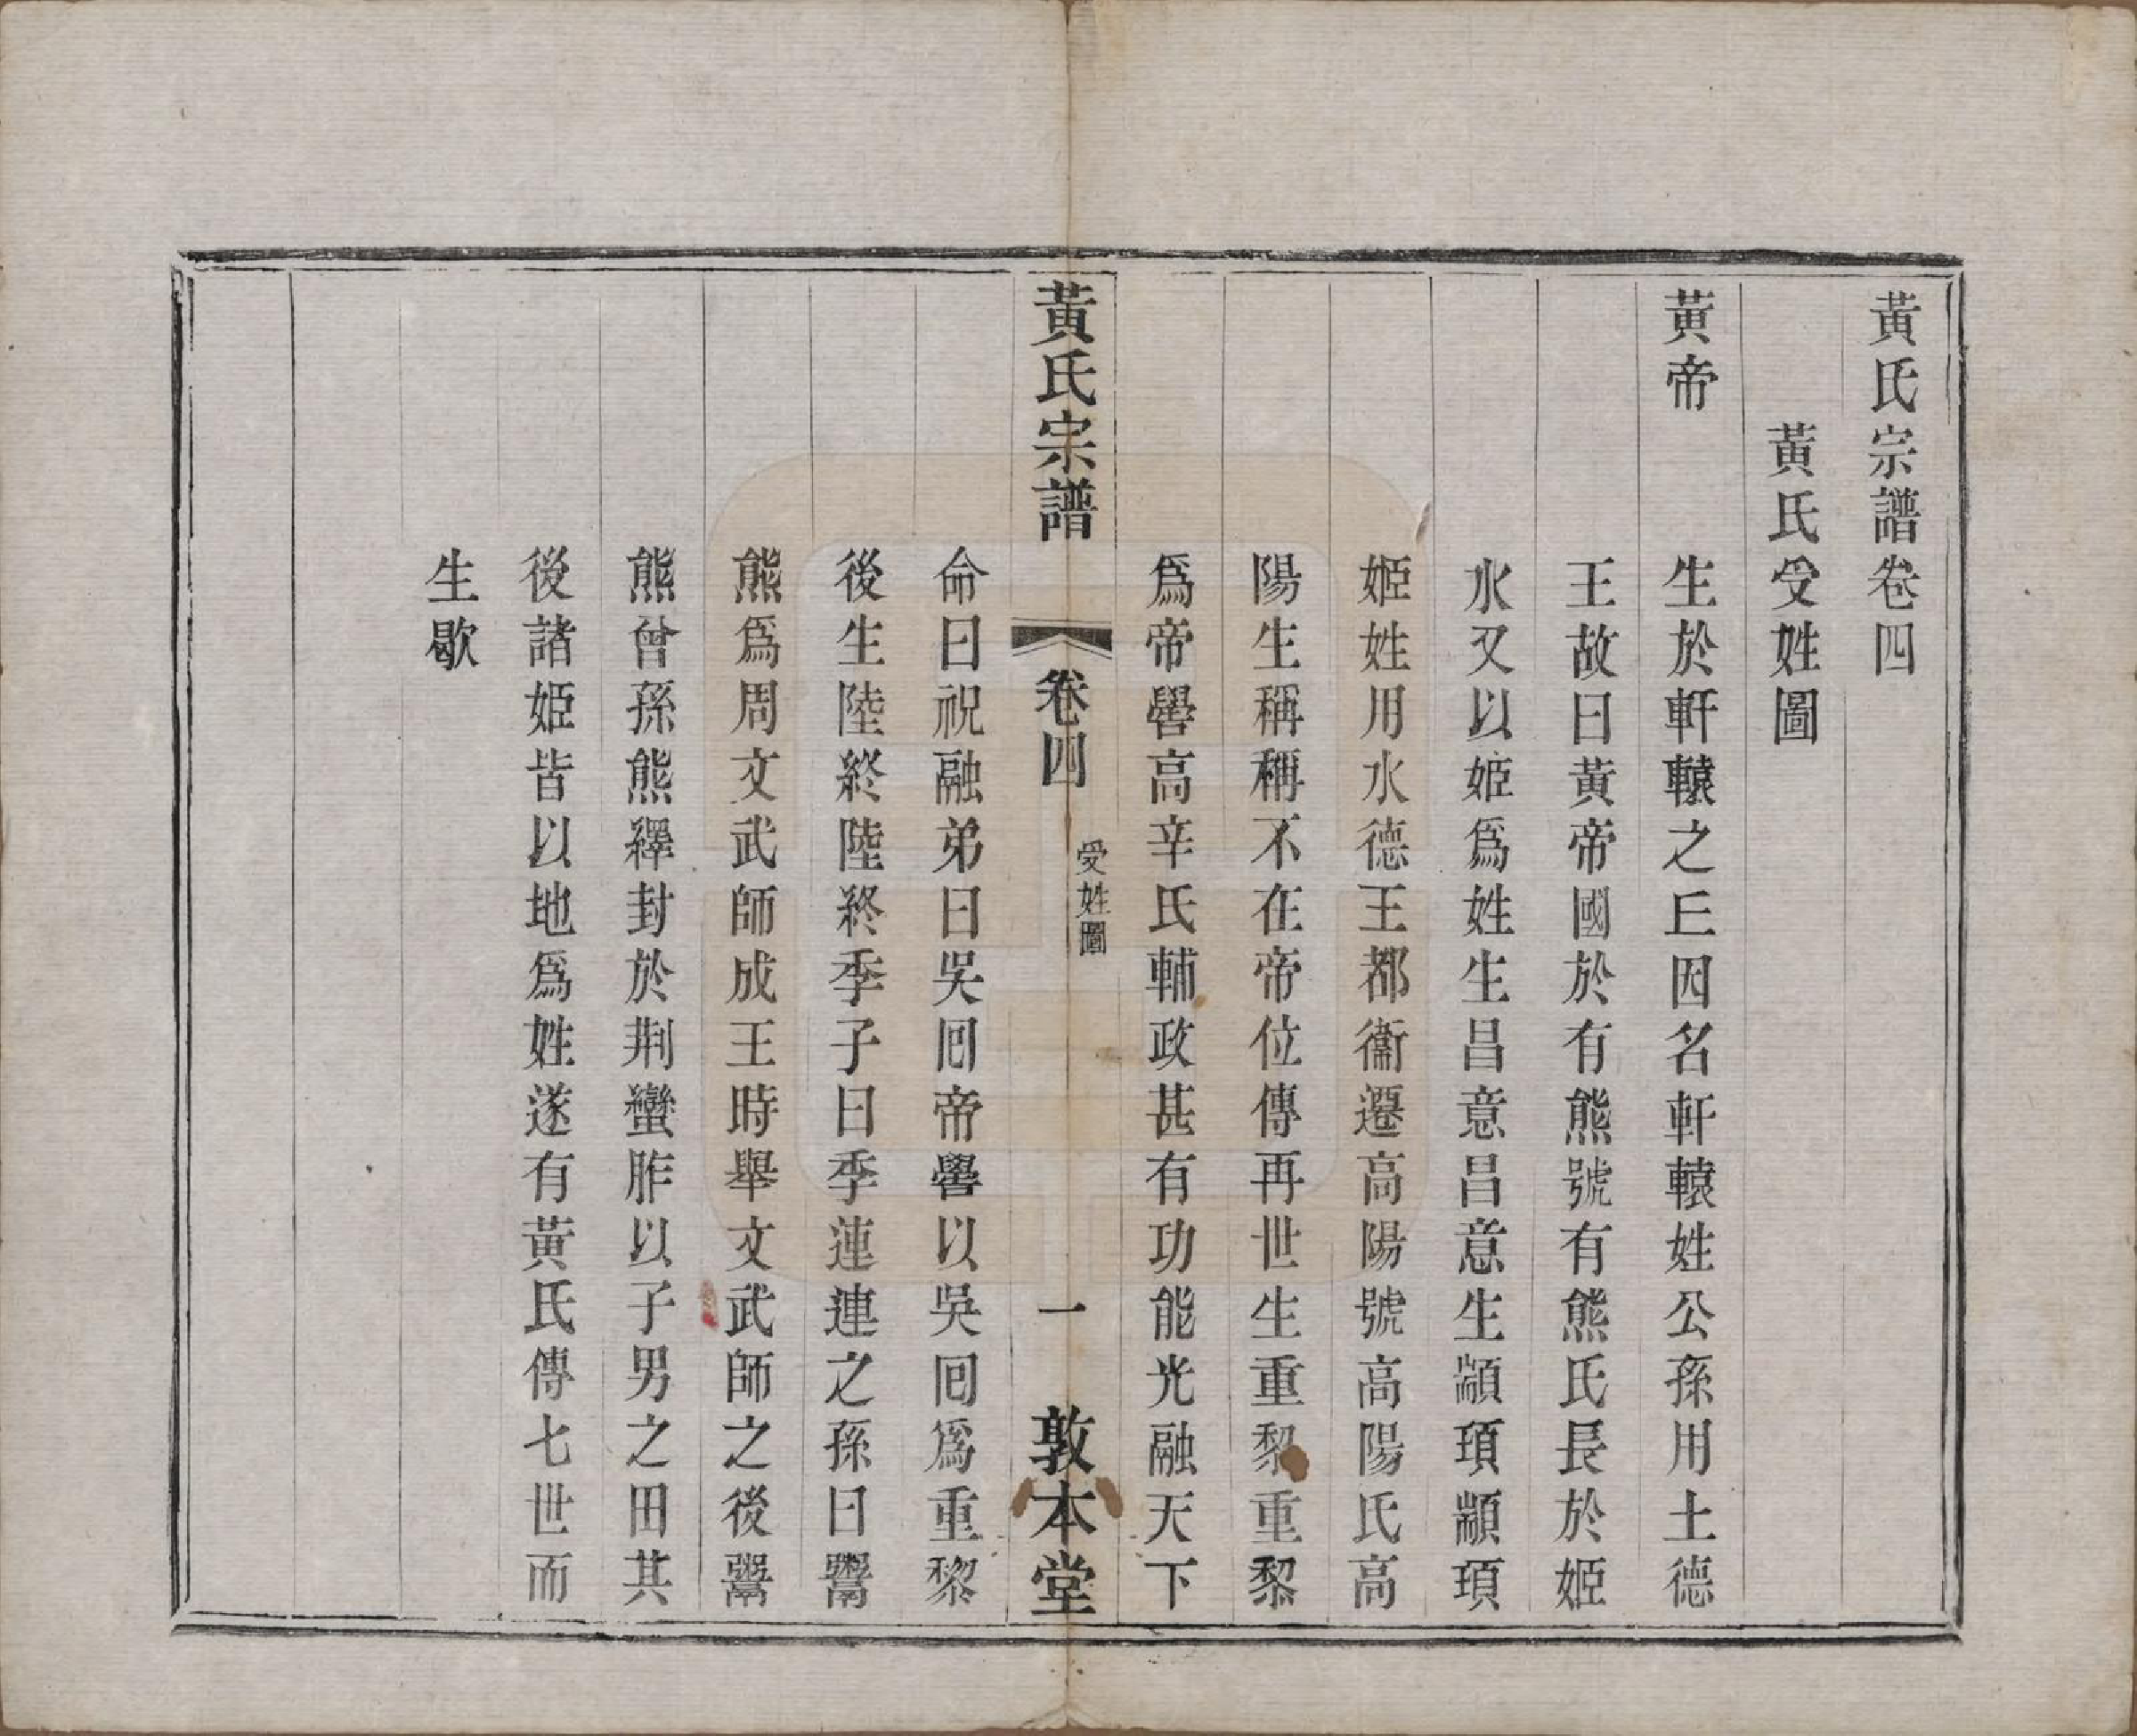 黃氏宗譜卷四
黃氏受姓圖
黃帝　生於軒轅之𠀌因名軒轅姓公孫用土德
王故曰黃帝國於有熊號有熊氏長於姬
水又以姬爲姓生昌意昌意生顓頊顓頊
姬姓用水德王都衞遷高陽號高陽氏高
陽生稱稱不在帝位傳再世生重黎重黎
爲帝嚳高辛氏輔政甚有功能光融天下
黃氏宗譜　卷四　受姓圖　一　敦本堂
命曰祝融弟曰吳囘帝嚳以吳囘爲重黎
後生陸終陸終季子曰季連連之孫曰鬻
熊爲周文武師成王時舉文武師之後鬻
熊曾孫熊繹封於荆蠻胙以子男之田其
後諸姬皆以地爲姓遂有黃氏傳七世而
生歇